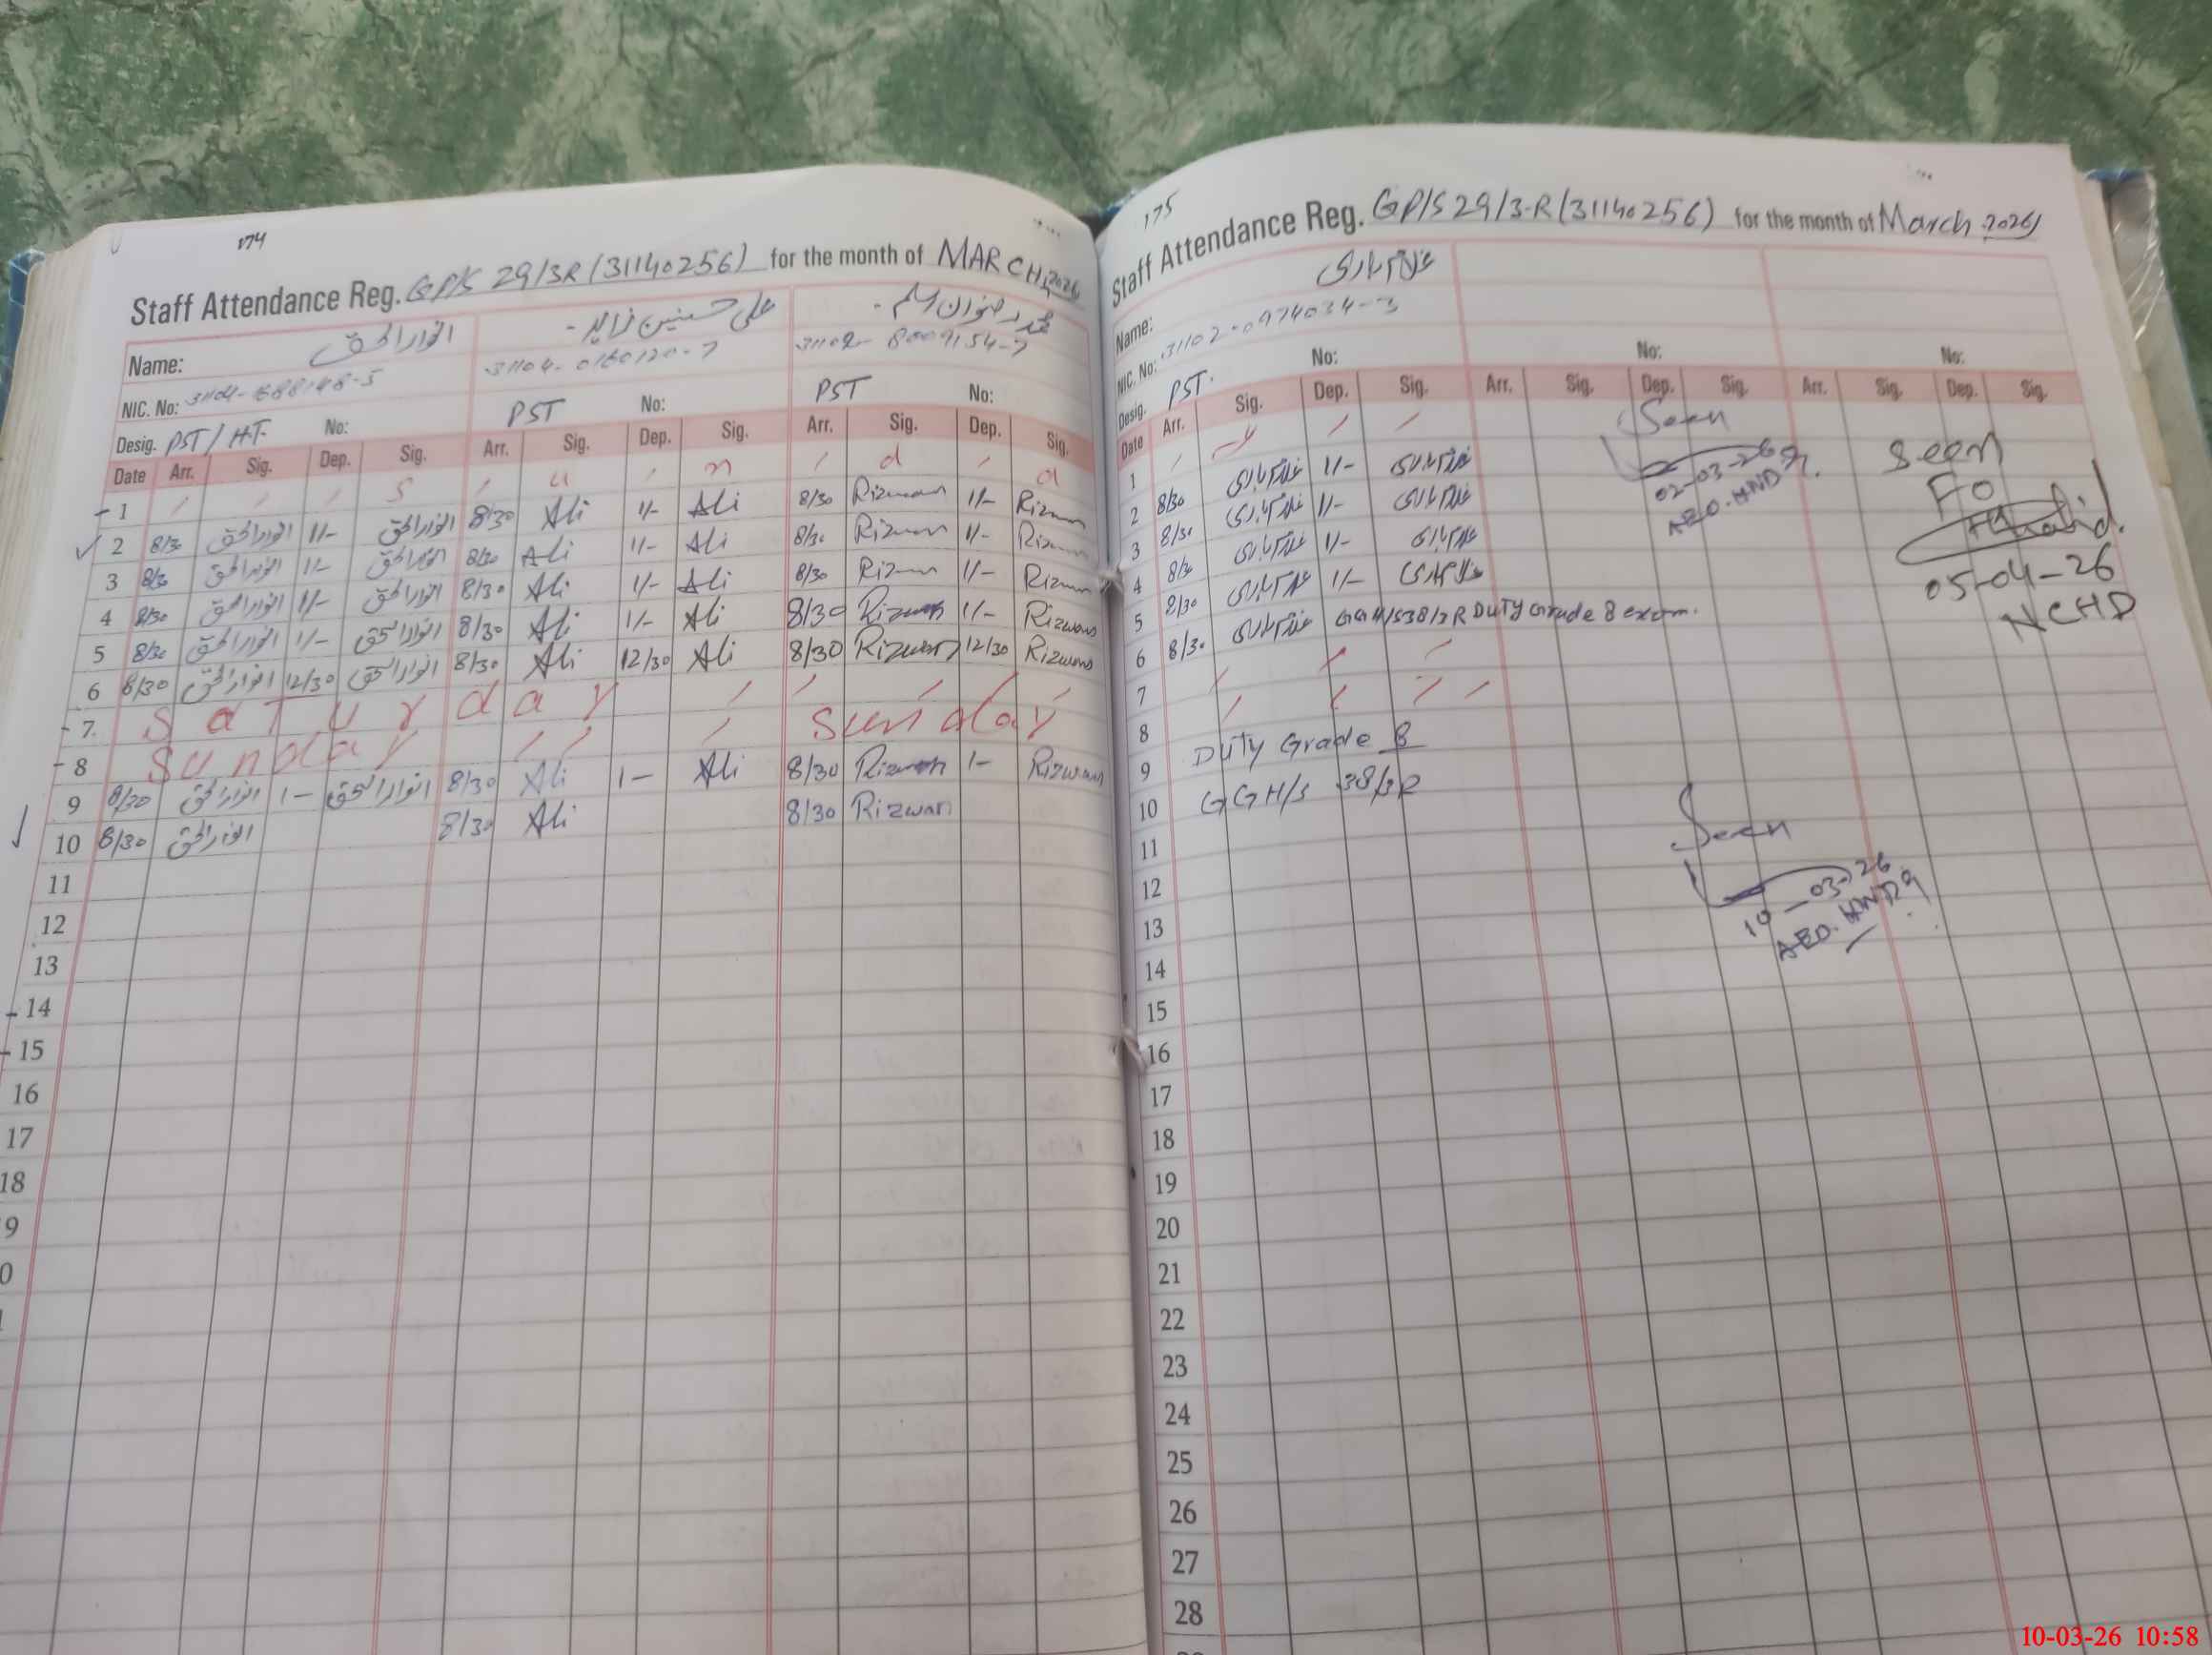 174
Staff Attendance Reg. GP/S 29/3R (31140256) for the month of MARCH, 2026
Name: انوارالحق علی حسنین زاہد - محمد رضوان اسلم -
NIC. No: 31104- 0160120-7 31102- 8009154-7
Desig. PST / H.T. No: PST No: PST No:
Date Arr. Sig. Dep. Sig. Arr. Sig. Dep. Sig. Arr. Sig. Dep. Sig.
1 S u n d a
2 8/30 انوارالحق 1/- انوارالحق 8/30 Ali 1/- Ali 8/30 Rizwan 1/- Rizwan
3 8/30 انوارالحق 1/- انوارالحق 8/30 Ali 1/- Ali 8/30 Rizwan 1/- Rizwan
4 8/30 انوارالحق 1/- انوارالحق 8/30 Ali 1/- Ali 8/30 Rizwan 1/- Rizwan
5 8/30 انوارالحق 1/- انوارالحق 8/30 Ali 1/- Ali 8/30 Rizwan 1/- Rizwan
6 8/30 انوارالحق 12/30 انوارالحق 8/30 Ali 12/30 Ali 8/30 Rizwan 12/30 Rizwan
7 Saturday
8 Sunday Sunday
9 8/30 انوارالحق 1- انوارالحق 8/30 Ali 1- Ali 8/30 Rizwan 1- Rizwan
10 8/30 انوارالحق 8/30 Ali 8/30 Rizwan
11
12
13
14
15
16
17
18
9
0
175
Staff Attendance Reg. GP/S 29/3-R (31140256) for the month of March 2026
Name: غلام باری
NIC. No: 31102-0974034-3
Desig. PST. No: No: No:
Date Arr. Sig. Dep. Sig. Arr. Sig. Dep. Sig. Arr. Sig. Dep. Sig.
1 y
2 8/30 غلام باری 1/- غلام باری
3 8/30 غلام باری 1/- غلام باری
4 8/30 غلام باری 1/- غلام باری
5 8/30 غلام باری 1/- غلام باری
6 8/30 غلام باری GGH/S 38/3R DUTY Grade 8 exam.
7
8
9 DUTY Grade 8
10 GGH/S 38/3R
11
12
13
14
15
16
17
18
19
20
21
22
23
24
25
26
27
28
Seen
02-03-26
AEO.
Seen
FO
Khalid.
05-04-26
NCHD
Seen
10-03-26
AEO.
10-03-26 10:58